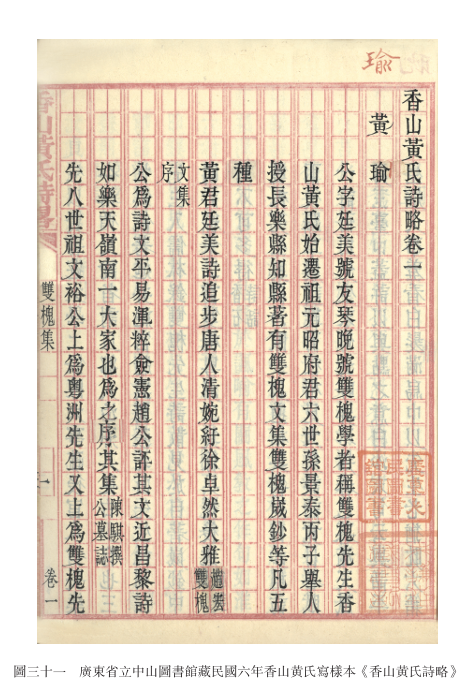 瑜
香山黃氏詩略卷一
黃 瑜
公字廷美號友琴晚號雙槐學者稱雙槐先生香
山黃氏始遷祖元昭府君六世孫景泰丙子舉人
授長樂縣知縣著有雙槐文集雙槐嵗鈔等凡五
種
黃君廷美詩追步唐人清婉紆徐卓然大雅 雙槐
文集序
公爲詩文平易渾粹僉憲趙公評其文近昌黎詩
如樂天嶺南一大家也爲之序其集 陳騏撰公墓誌
先八世祖文裕公上爲粵洲先生又上爲雙槐先
雙槐集 一 卷一
圖三十一 廣東省立中山圖書館藏民國六年香山黃氏寫樣本《香山黃氏詩略》